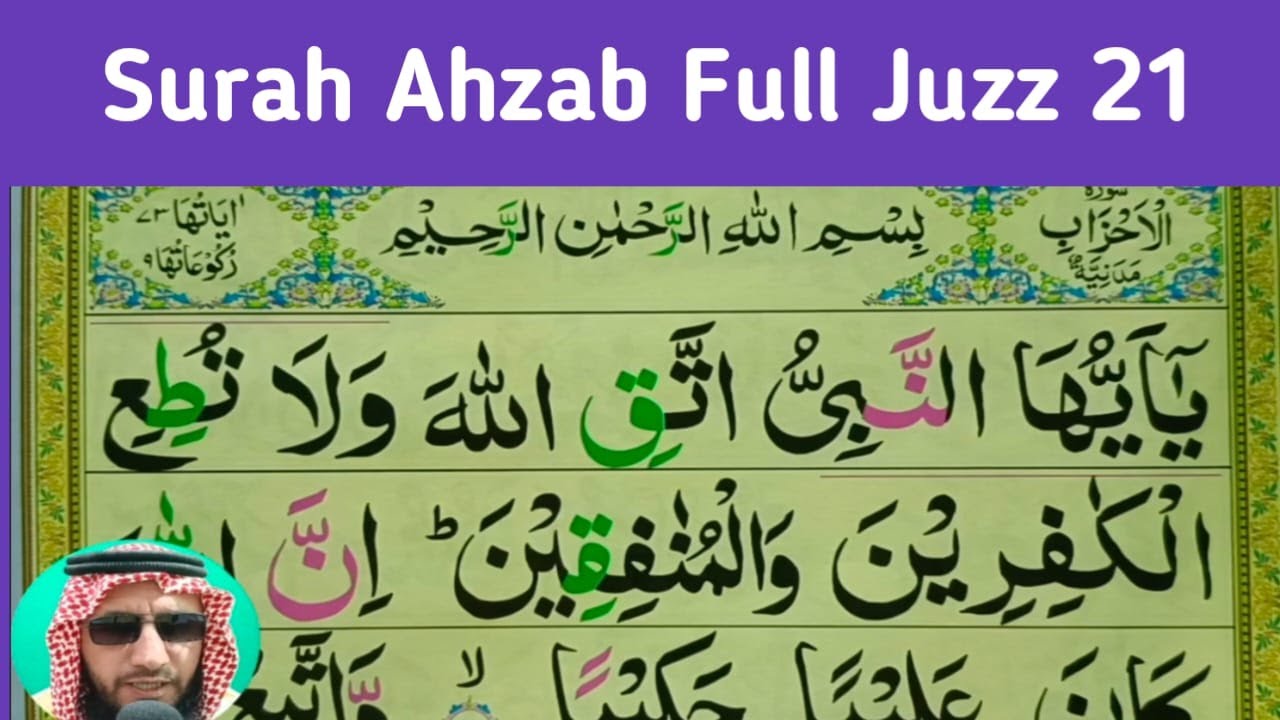 Surah Ahzab Full Juzz 21
سُورَةُ
الْاَحْزَابِ
مَدَنِيَّةٌ
بِسْمِ اللهِ الرَّحْمٰنِ الرَّحِيْمِ
اٰيَاتُهَا ٧٣
رُكُوْعَاتُهَا ٩
يٰۤاَيُّهَا النَّبِىُّ اتَّقِ اللهَ وَلَا تُطِعِ
الْكٰفِرِيْنَ وَالْمُنٰفِقِيْنَ ؕ اِنَّ اللهَ
كَانَ عَلِيْمًا حَكِيْمًا ۙ وَّاتَّبِعْ